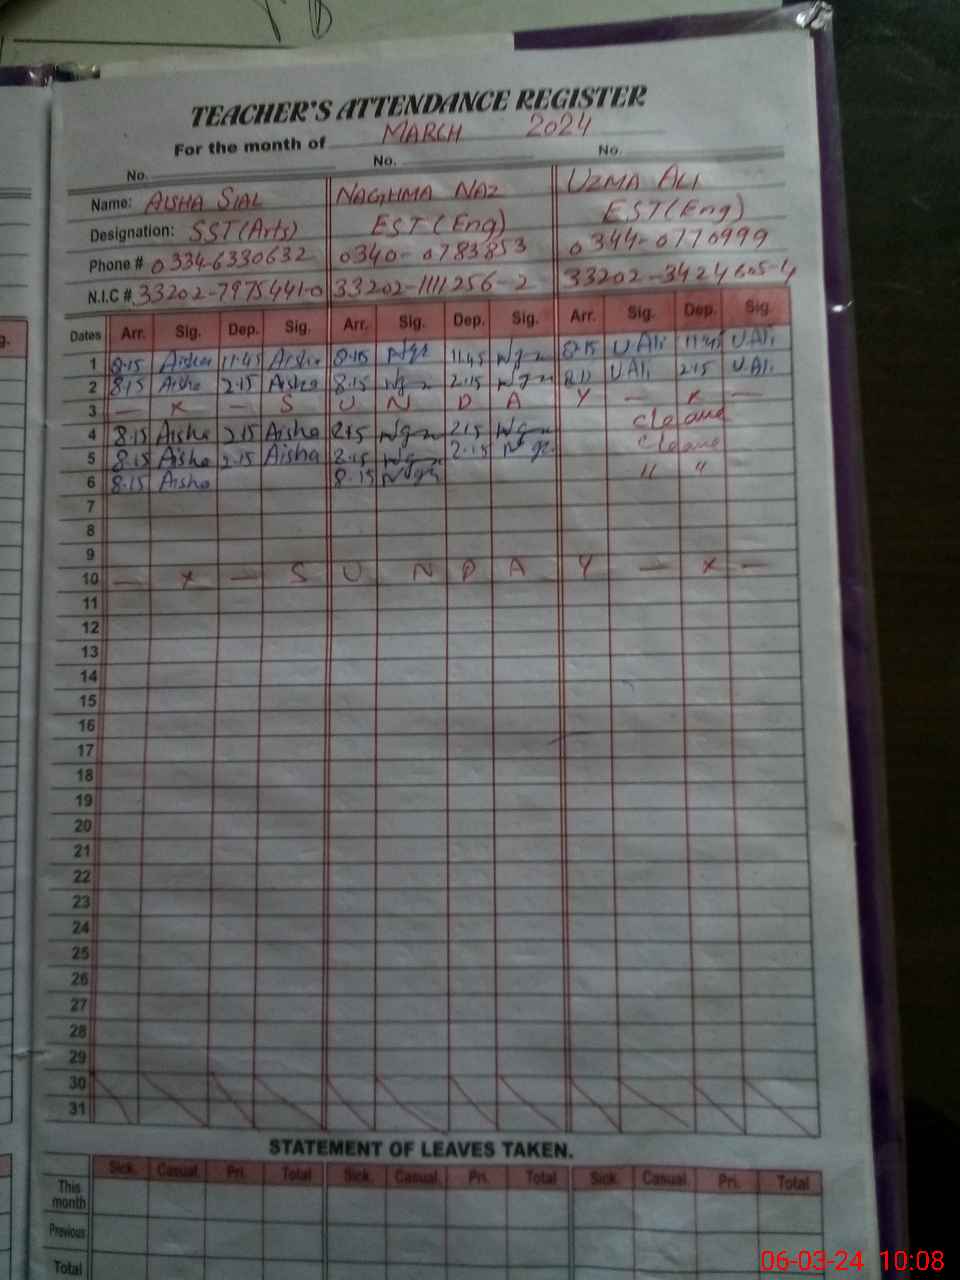 TEACHER'S ATTENDANCE REGISTER
For the month of MARCH 2024
No. No. No.
Name: AISHA SIAL NAGHMA NAZ UZMA ALI
Designation: SST(Arts) EST(Eng) EST(Eng)
Phone # 0334-6330632 0340-0783853 0344-0770999
N.I.C #. 33202-7975441-0 33202-1111256-2 33202-3424605-4
Dates Arr. Sig. Dep. Sig. Arr. Sig. Dep. Sig. Arr. Sig. Dep. Sig.
1 8-15 Aisha 11-45 Aisha 8-15 11.45 8-15 U.Ali 11-45 U.Ali
2 8.15 Aisha 2.15 Aisha 8.15 2.15 U.Ali 2.15 U.Ali
3 — x — S U N D A Y — x —
4 8.15 Aisha 2.15 Aisha 2.15 2.15
5 8.15 Aisha 2.15 Aisha 2.15 2.15
6 8.15 Aisha 8.15 " "
7
8
9
10 — x — S U N D A Y — x —
11
12
13
14
15
16
17
18
19
20
21
22
23
24
25
26
27
28
29
30
31
STATEMENT OF LEAVES TAKEN.
Sick. Casual. Pri. Total Sick. Casual. Pri. Total Sick. Casual. Pri. Total
This
month
Previous
Total
06-03-24 10:08